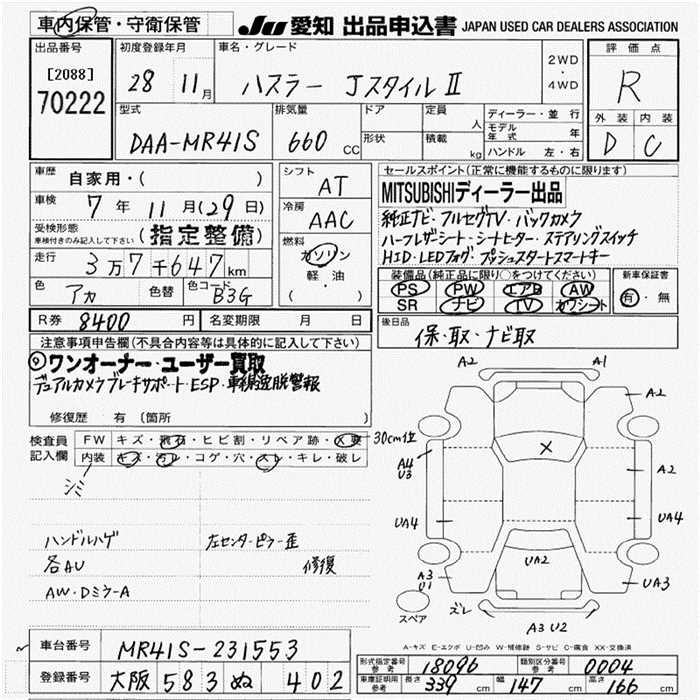 車内保管・守衛保管 JU 愛知 出品申込書 JAPAN USED CAR DEALERS ASSOCIATION
出品番号 初度登録年月 車名・グレード 2WD・4WD 評価点
[2088] 28 11月 ハスラー JスタイルⅡ R
70222
型式 排気量 ドア 定員 人 ディーラー・並行 外装 内装
DAA-MR41S 660 CC 形状 積載 kg モデル年式 年 D C
ハンドル 左・右
車歴 自家用・( ) シフト AT
車検 7年11月(29日) 冷房 AAC
受検形態 車検付きのみ記入して下さい (指定整備) 燃料 ガソリン
走行 3万7千647km 軽油
色 アカ 色替 色コード B3G ( )
R券 8400円 名変期限 月 日
セールスポイント(正常に機能するものに限ります)
MITSUBISHIディーラー出品
純正ナビ・フルセグTV・バックカメラ
ハーフレザーシート・シートヒーター・ステアリングスイッチ
HID・LEDフォグ・プッシュスタートスマートキー
装備品(純正品に限り○をつけてください) 新車保証書
PS PW エアB AW 有・無
SR ナビ TV カワシート
後日品
保・取・ナビ取
注意事項申告欄(不具合内容等は具体的に記入して下さい)
ワンオーナー・ユーザー買取
デュアルカメラブレーキサポート・ESP・車線逸脱警報
修復歴 有 (箇所
検査員記入欄 FW キズ・飛石・ヒビ割・リペア跡・X要 30cm位
内装 キズ・汚レ・コゲ・穴・スレ・キレ・破レ
シミ
ハンドルハゲ 左センターピラー歪
各AU 修復
AW・DミラーA
A2 A1
A2
X
A4
U3
A2
UA4 UA4
UA2
A3
U1
UA3
スペア ズレ
A3 U2
A-キズ E-エクボ U-凹み W-補修跡 S-サビ C-腐食 XX-交換済
車台番号 MR41S-231553
登録番号 大阪 583 ぬ 402
形式指定番号 参考 18096 類別区分番号 参考 0004
車庫証明用 参考 長さ 339cm 幅 147cm 高さ 166cm